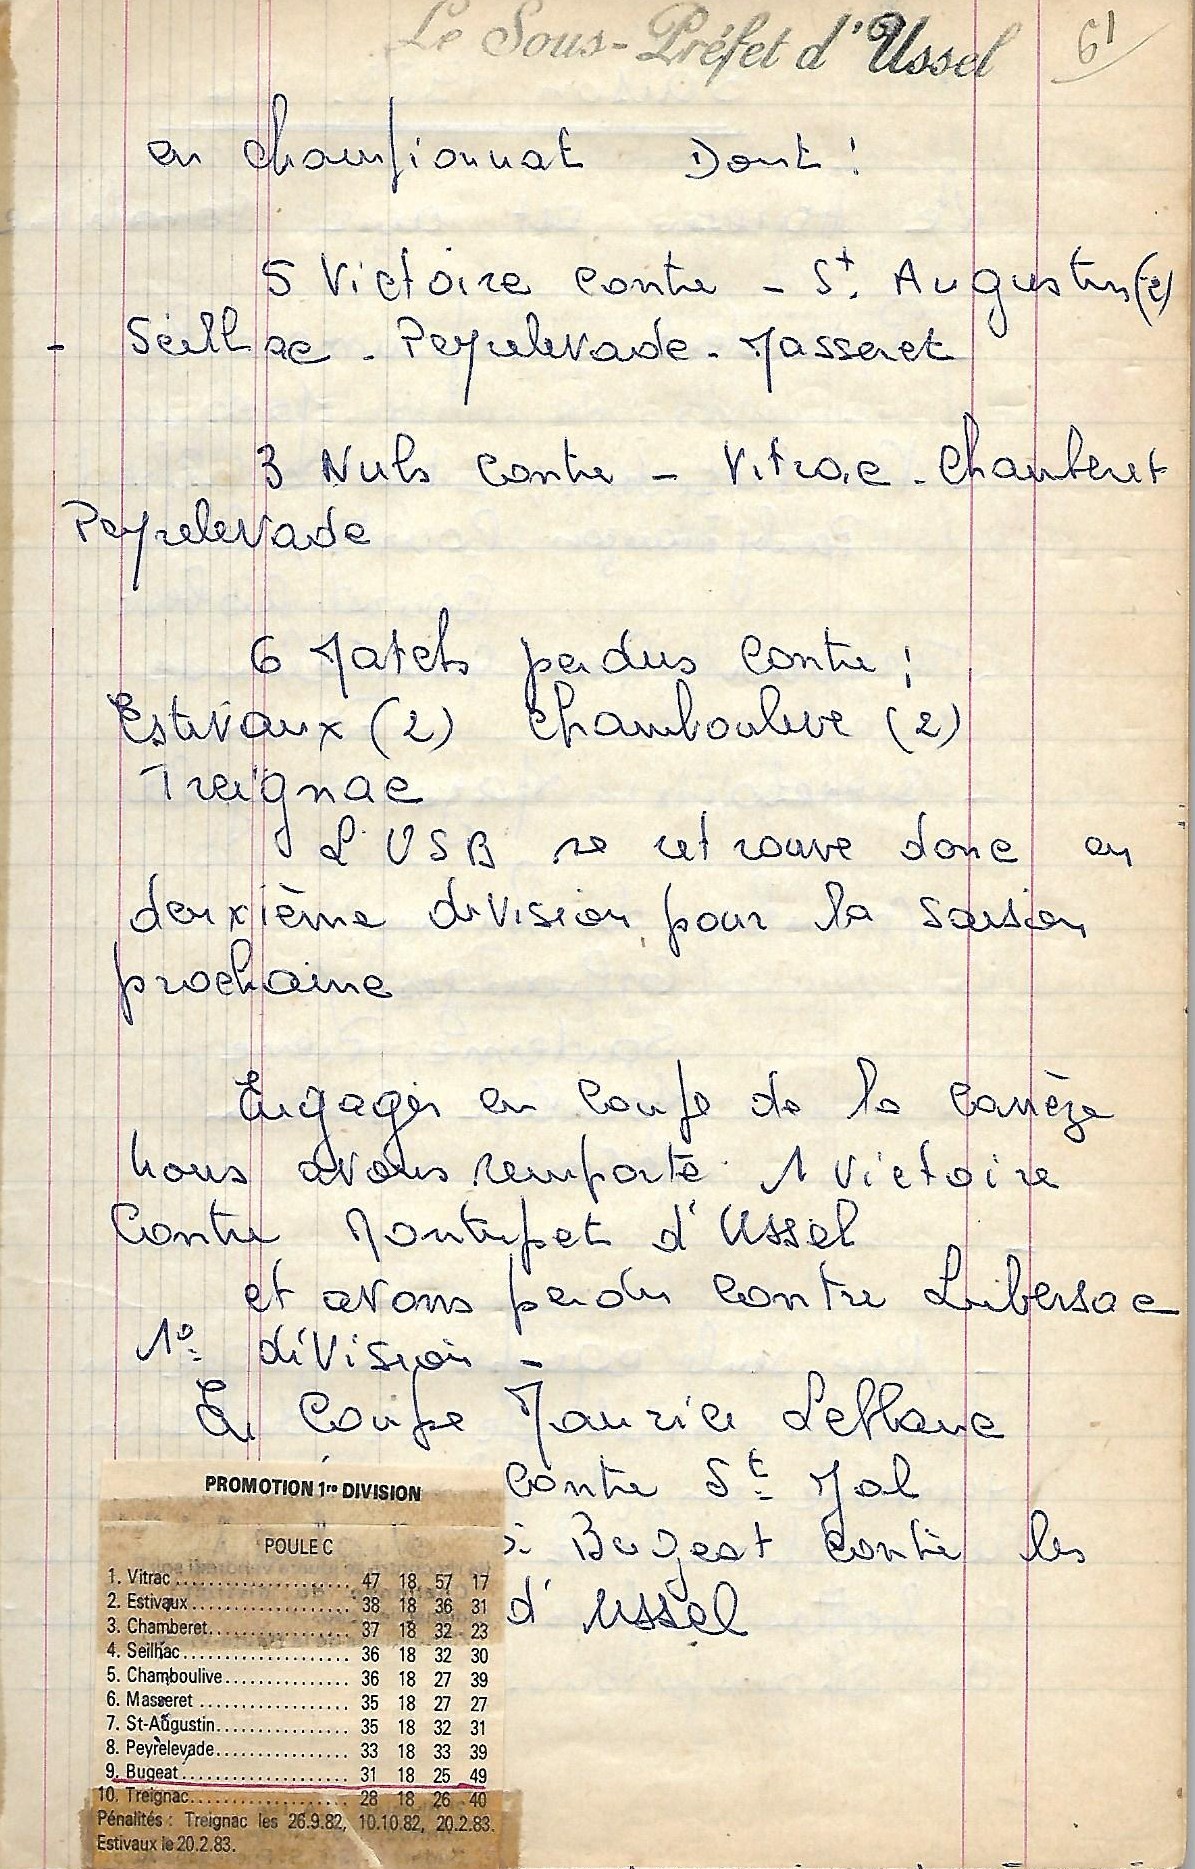 Le Sous-Préfet d'Ussel
61
en championnat Dont :
5 Victoire contre - St. Augustin (2)
- Seilhac - Peyrelevade - Masseret
3 Nuls contre - Vitrac - Chamberet
Peyrelevade
6 Matchs perdus contre :
Estivaux (2) Chamboulive (2)
Treignac
L'USB se retrouve donc en
deuxième division pour la saison
prochaine
Engagés en coupe de la Corrèze
nous avons remporté 1 victoire
contre Ussel
et avons perdu contre Lubersac
1° division -
En Coupe Maurice Leblanc
contre St Mal
Bugeat contre les
d'Ussel
PROMOTION 1re DIVISION
POULE C
1. Vitrac...................... 47 18 57 17
2. Estivaux.................... 38 18 36 31
3. Chamberet.................. 37 18 32 23
4. Seilhac..................... 36 18 32 30
5. Chamboulive............... 36 18 27 39
6. Masseret .................. 35 18 27 27
7. St-Augustin................ 35 18 32 31
8. Peyrelevade............... 33 18 33 39
9. Bugeat..................... 31 18 25 49
10. Treignac................... 28 18 26 40
Pénalités : Treignac les 26.9.82, 10.10.82, 20.2.83.
Estivaux le 20.2.83.